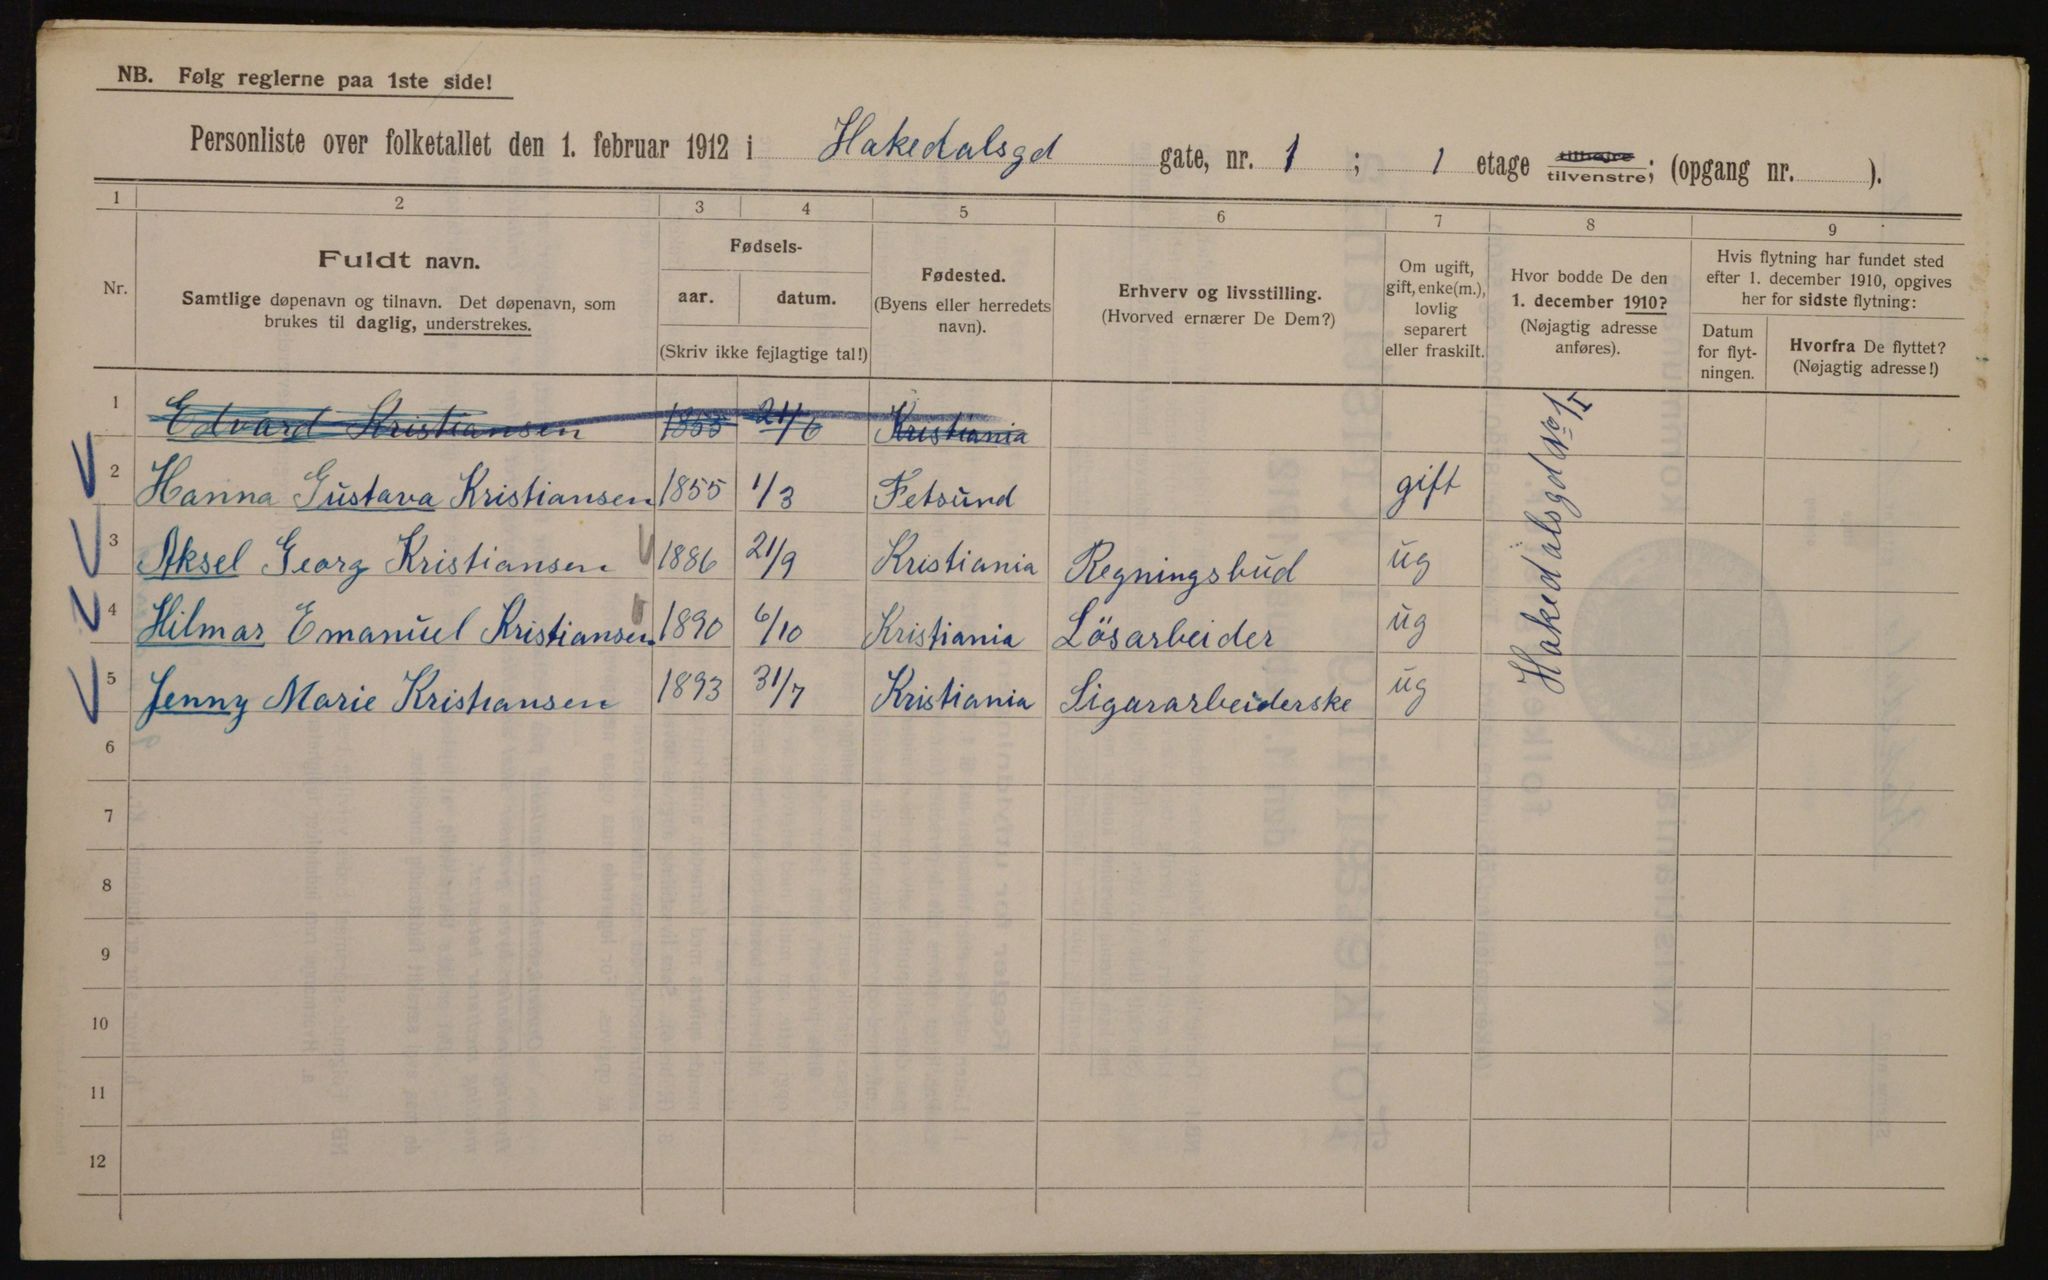 NB. Følg reglerne paa 1ste side!
Personliste over folketallet den 1. februar 1912 i Hakedalsgd gate, nr. 1 ; 1 etage tilhøjre tilvenstre; (opgang nr. ).
1 2 3 4 5 6 7 8 9
Nr.
Fuldt navn.
Samtlige døpenavn og tilnavn. Det døpenavn, som
brukes til daglig, understrekes.
Fødsels-
aar. datum.
(Skriv ikke fejlagtige tal!)
Fødested.
(Byens eller herredets
navn).
Erhverv og livsstilling.
(Hvorved ernærer De Dem?)
Om ugift,
gift, enke(m.),
lovlig
separert
eller fraskilt.
Hvor bodde De den
1. december 1910?
(Nøjagtig adresse
anføres).
Hvis flytning har fundet sted
efter 1. december 1910, opgives
her for sidste flytning:
Datum
for flyt-
ningen.
Hvorfra De flyttet?
(Nøjagtig adresse!)
1 Edvard Kristiansen 1855 21/6 Kristiania
2 Hanna Gustava Kristiansen 1855 1/3 Fetsund gift
3 Aksel Georg Kristiansen 1886 21/9 Kristiania Regningsbud ug
4 Hilmar Emanuel Kristiansen 1890 6/10 Kristiania Lösarbeider ug
5 Jenny Marie Kristiansen 1893 31/7 Kristiania Sigararbeiderske ug
Hakedalsgd No 1 I
6
7
8
9
10
11
12